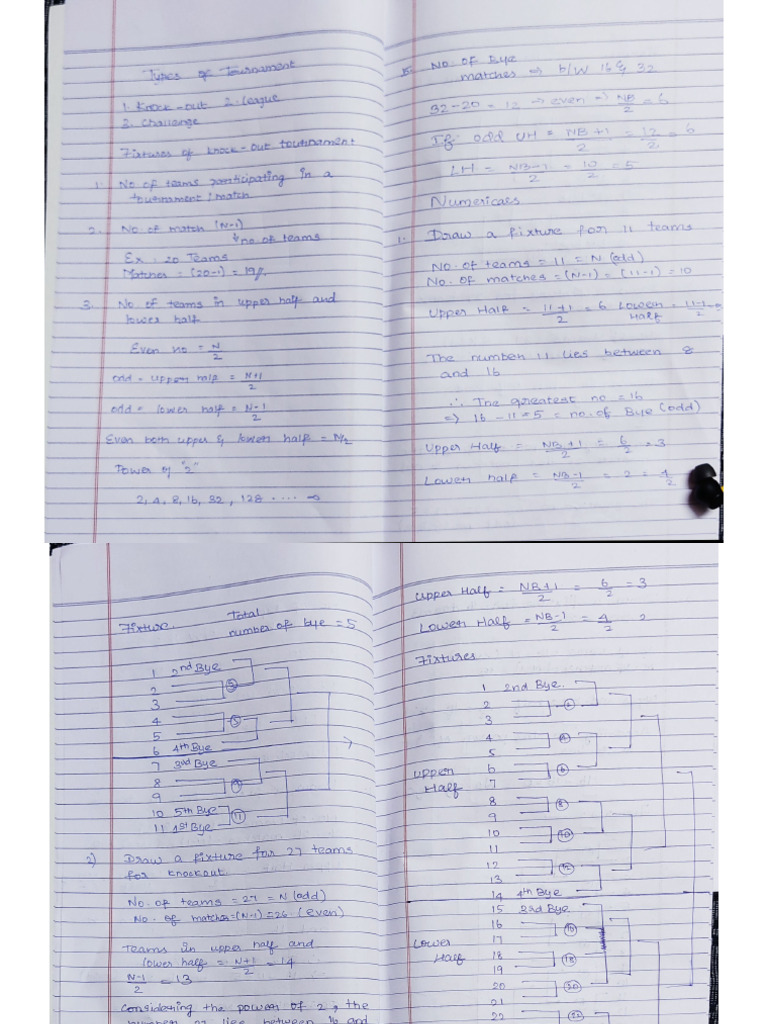 Types of Tournament
1. Knock-out 2. League
2. Challenge
Fixtures of knock-out tournament
1. No of teams participating in a
tournament / match
2. No. of match (N-1)
no. of teams
Ex: 20 Teams
Matches = (20-1) = 19
3. No of teams in upper half and
lower half
Even no = N/2
odd = upper half = N+1/2
odd = lower half = N-1/2
Even both upper & lower half = N/2
Power of "2"
2, 4, 8, 16, 32, 128 .... ∞
No. of Bye
matches => b/w 16 & 32
32-20 = 12 → even => NB/2 = 6
If odd UH = NB+1/2 = 12/2 = 6
LH = NB-1/2 = 10/2 = 5
Numericals
1. Draw a fixture for 11 teams
No. of teams = 11 = N (odd)
No. of matches = (N-1) = (11-1) = 10
Upper Half = 11+1/2 = 6 Lower Half = 11-1/2 =
The number 11 lies between 8
and 16
∴ The greatest no = 16
=> 16 - 11 = 5 = no. of Bye (odd)
Upper Half = NB+1/2 = 6/2 = 3
Lower half = NB-1/2 = 2 = 4/2
Fixture. Total
number of bye = 5
1 2nd Bye
2
3
4
5
6 4th Bye
7 3rd Bye
8
9
10 5th Bye
11 1st Bye
2) Draw a fixture for 27 teams
for knockout.
No. of teams = 27 = N (odd)
No. of matches = (N-1) = 26 (even)
Teams in upper half and
lower half = N+1/2 = 14
N-1/2 = 13
Considering the power of 2, the
number 27 lies between 16 and
Upper Half = NB+1/2 = 6/2 = 3
Lower Half = NB-1/2 = 4/2 2
Fixtures
1 2nd Bye.
2
3
4
5
Upper 6
Half 7
8
9
10
11
12
13
14 4th Bye
15 3rd Bye
16
Lower 17
Half 18
19
20
21
22